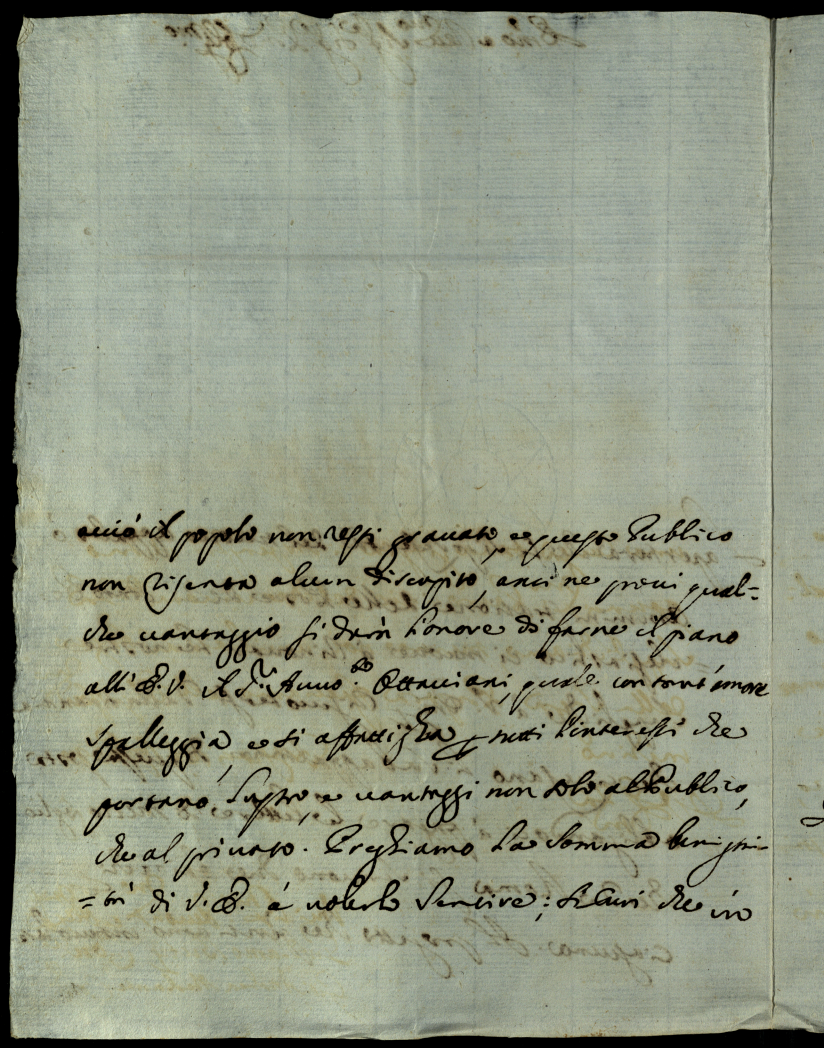 acciò il popolo non resti gravato, e questo Publico
non risenta alcun discapito, anzi ne provi qual=
che vantaggio si darà l'onore di farne il piano
all' E. V. il Sr. Avvo. Ottaviani, quale con tant'amore
spalleggia, e si affattigha p tutti l'interessi che
portano, lustro, e vantaggi non solo al Publico,
che al privato. Preghiamo la somma benigni-
=tà di V. E. à volerlo sentire; sicuri che in